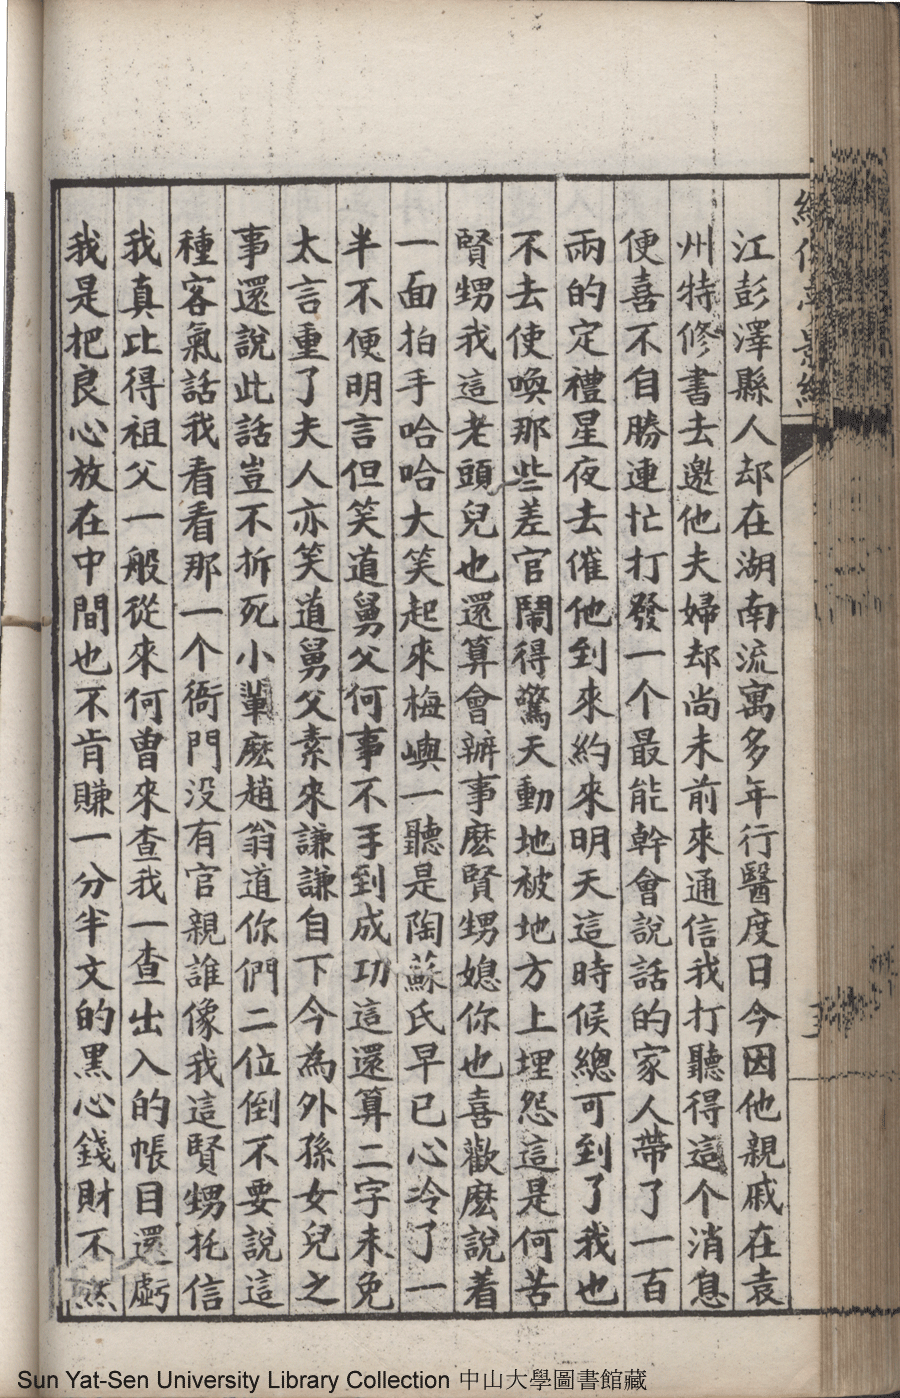 江彭澤縣人却在湖南流寓多年行醫度日今因他親戚在袁
州特修書去邀他夫婦却尚未前來通信我打聽得這个消息
便喜不自勝連忙打發一个最能幹會說話的家人帶了一百
兩的定禮星夜去催他到來約來明天這時候總可到了我也
不去使喚那些差官鬧得驚天動地被地方上埋怨這是何苦
賢甥我這老頭兒也還算會辦事麽賢甥媳你也喜歡麽說着
一面拍手哈哈大笑起來梅嶼一聽是陶蘇氏早已心冷了一
半不便明言但笑道舅父何事不手到成功這還算二字未免
太言重了夫人亦笑道舅父素來謙謙自下今為外孫女兒之
事還說此話豈不折死小輩麽趙翁道你們二位倒不要說這
種客氣話我看看那一个衙門没有官親誰像我這賢甥托信
我真比得祖父一般從來何曾來查我一查出入的帳目還虧
我是把良心放在中間也不肯賺一分半文的黑心錢財不然
Sun Yat-Sen University Library Collection 中山大學圖書館藏